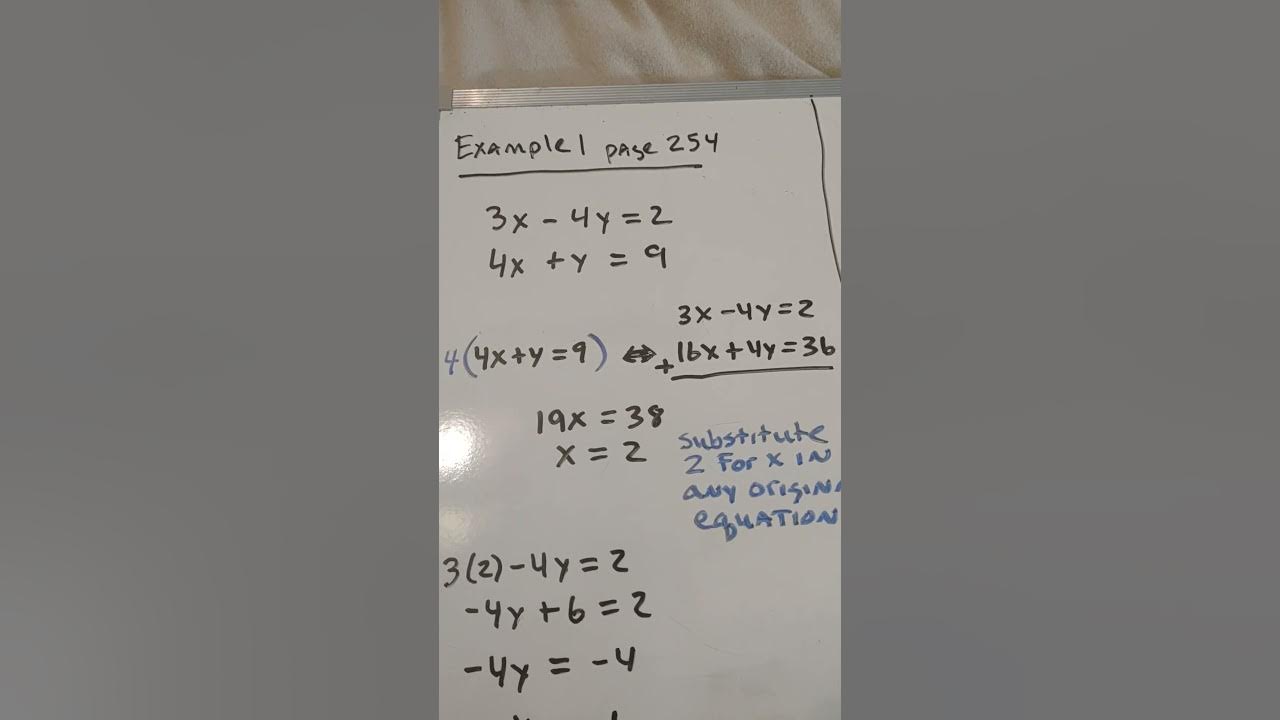 Example 1 page 254
3x - 4y = 2
4x + y = 9
3x - 4y = 2
4(4x + y = 9) ⇔ + 16x + 4y = 36
19x = 38
x = 2
substitute
2 for x in
any origin
equation
3(2) - 4y = 2
-4y + 6 = 2
-4y = -4